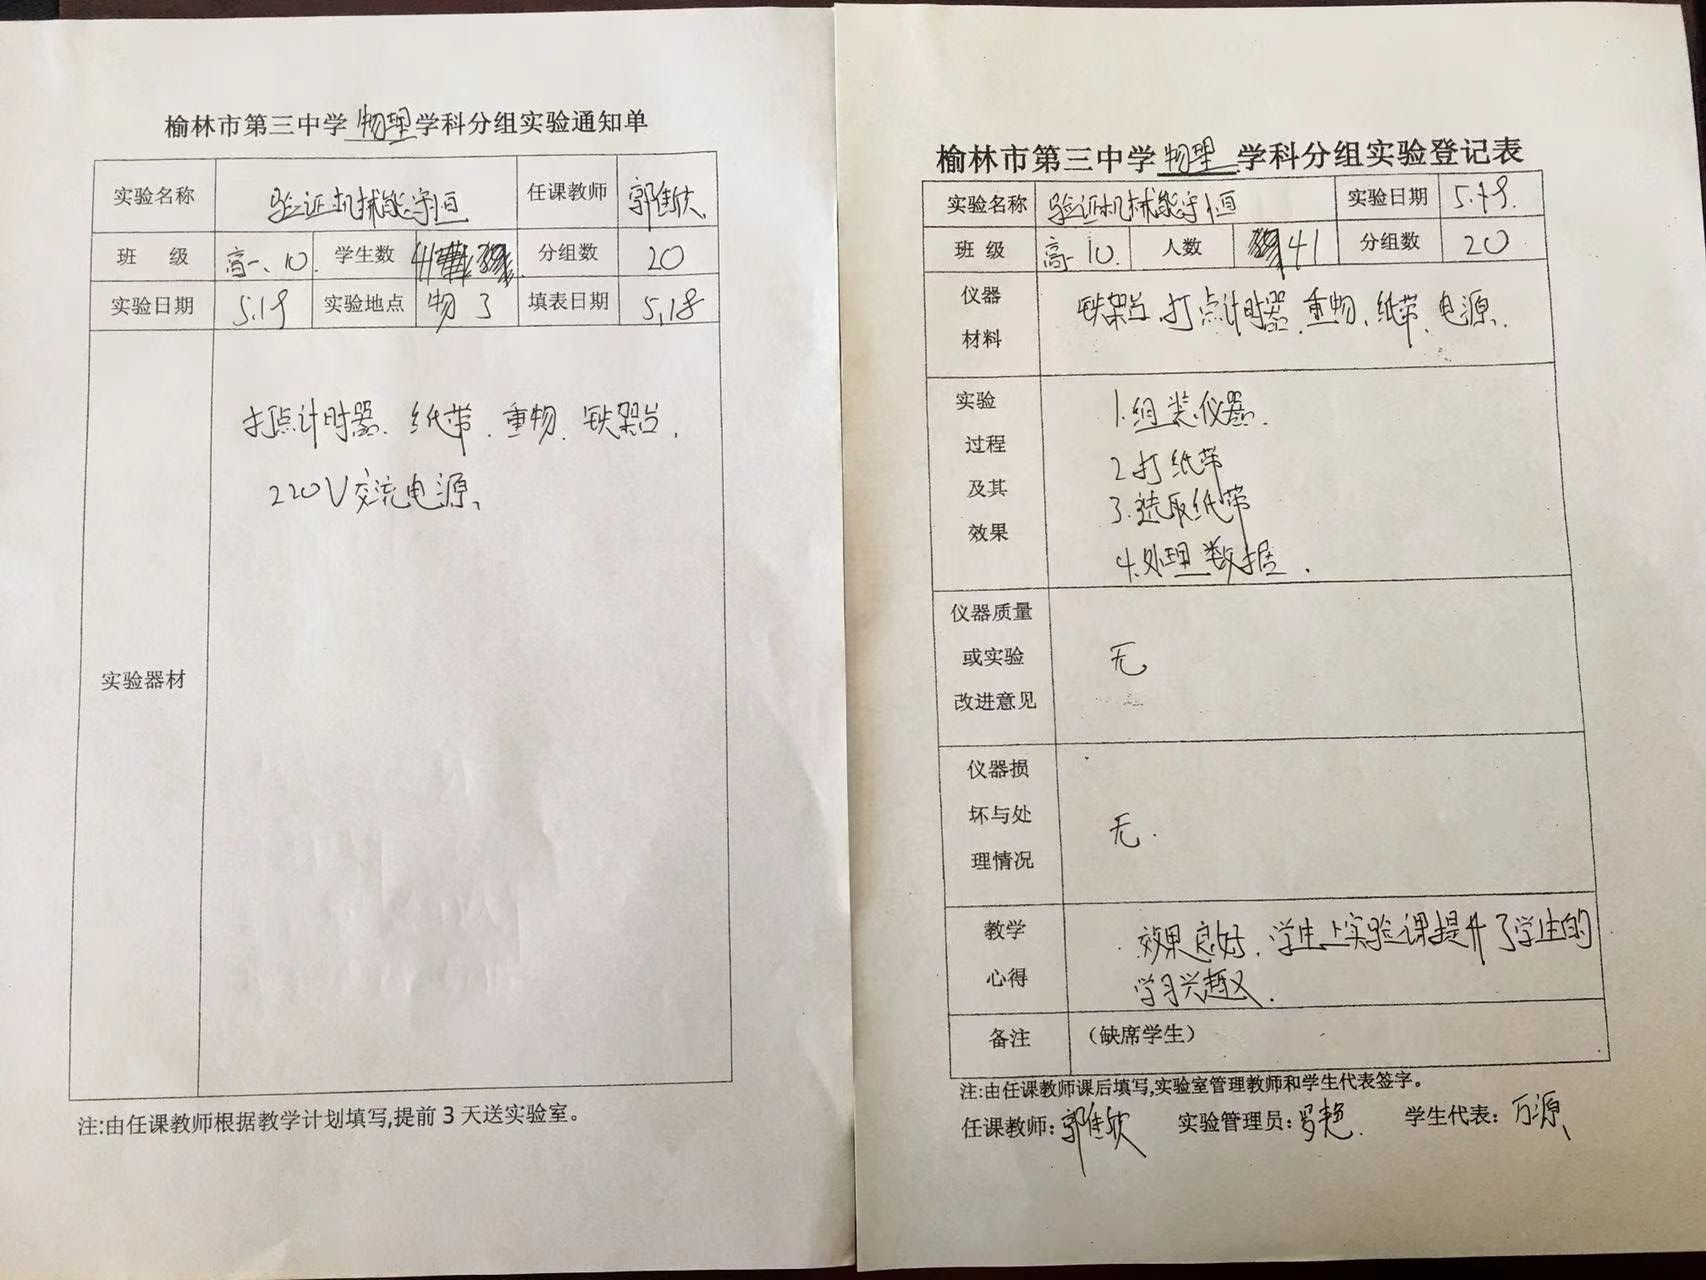 榆林市第三中学 物理 学科分组实验通知单
实验名称 验证机械能守恒 任课教师 郭佳欣
班 级 高一、10. 学生数 41 分组数 20
实验日期 5.19 实验地点 物 3 填表日期 5.18
实验器材
打点计时器、纸带、重物、铁架台、
220V交流电源、
注:由任课教师根据教学计划填写,提前 3 天送实验室。
榆林市第三中学 物理 学科分组实验登记表
实验名称 验证机械能守恒 实验日期 5.19.
班 级 高一 10. 人数 41 分组数 20
仪器
材料
铁架台、打点计时器、重物、纸带、电源、
实验
过程
及其
效果
1.组装仪器.
2.打纸带
3.选取纸带
4.处理数据.
仪器质量
或实验
改进意见
无
仪器损
坏与处
理情况
无.
教学
心得
效果良好.学生上实验课提升了学生的
学习兴趣.
备注 (缺席学生)
注:由任课教师课后填写,实验室管理教师和学生代表签字。
任课教师:郭佳欣 实验管理员: 学生代表:万源